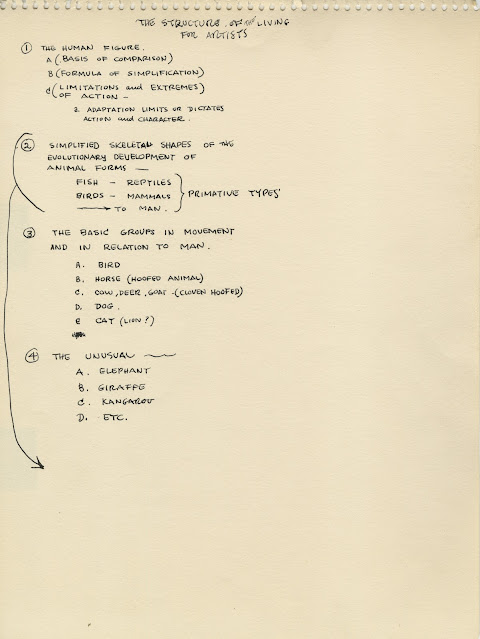 THE STRUCTURE OF THE LIVING
FOR ARTISTS
① THE HUMAN FIGURE.
A (BASIS OF COMPARISON)
B (FORMULA OF SIMPLIFICATION)
C (LIMITATIONS and EXTREMES)
OF ACTION —
2. ADAPTATION LIMITS OR DICTATES
ACTION and CHARACTER.
② SIMPLIFIED SKELETAL SHAPES OF THE
EVOLUTIONARY DEVELOPMENT OF
ANIMAL FORMS —
FISH - REPTILES
BIRDS - MAMMALS } PRIMATIVE TYPES
TO MAN.
③ THE BASIC GROUPS IN MOVEMENT
AND IN RELATION TO MAN.
A. BIRD
B. HORSE (HOOFED ANIMAL)
C. COW, DEER, GOAT - (CLOVEN HOOFED)
D. DOG.
E CAT (LION?)
④ THE UNUSUAL —
A. ELEPHANT
B. GIRAFFE
C. KANGAROU
D. ETC.